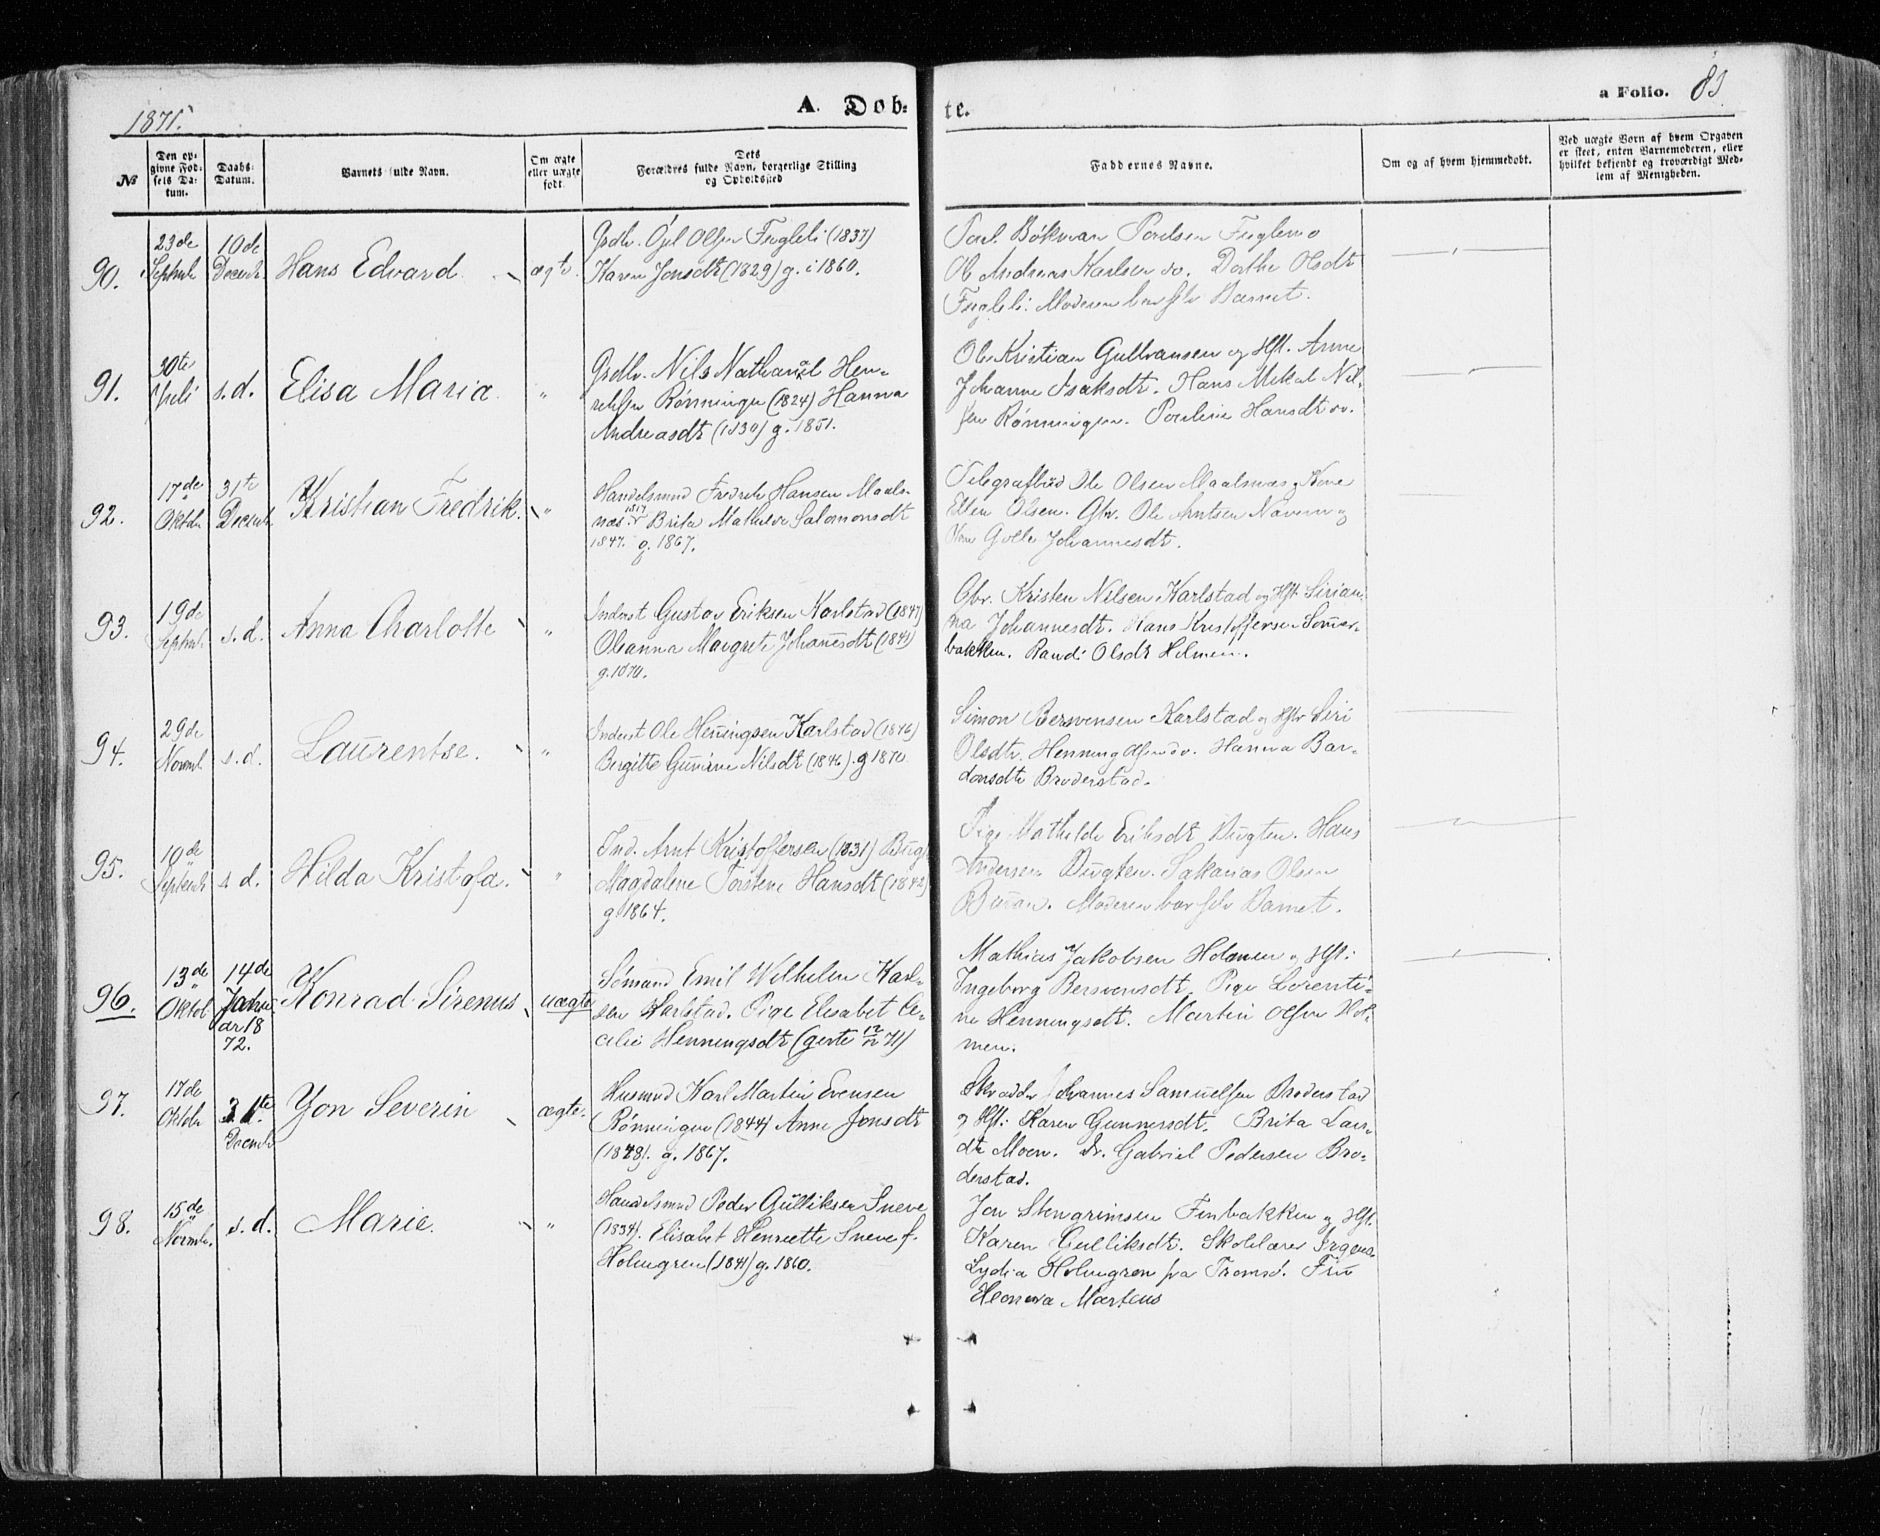 1871.
A. Døb-
te.
a Folio. 83
№
Den op-
givne Fød-
sels Da-
tum.
Daabs-
Datum.
Barnets fulde Navn.
Om ægte
eller uægte
født.
Dets
Forældres fulde Navn, borgerlige Stilling
og Opholdssted
Faddernes Navne.
Om og af hvem hjemmedøbt.
Ved uægte Børn af hvem Opgaven
er skeet, enten Barnemoderen, eller
hvilket bekjendt og troværdigt Med-
lem af Menigheden.
90.
23de
Septmb
10de
Decemb
Hans Edvard
ægte.
Grdbr. Ojel Olsen Fugleli (1837)
Karen Jonsdtr (1829) g. i 1860.
Poul Bökman Poulsen Fuglemo
Ole Andreas Karlsen do. Dorthe Olsdtr
Fugleli. Moderen bar selv Barnet.
91.
30te
Juli
s.d.
Elisa Maria
"
Grdbr. Nils Nathanael Hen-
riksen Rønningen (1824) Hanna
Andreasdtr (1830) g. 1851.
Ole Kristian Gulbransen og Hst. Anne
Johanne Isaksdtr. Hans Mikal Nil-
sen Rønningen. Pauline Hansdtr do.
92.
17de
Oktbr
31te
Decemb.
Kristian Fredrik.
"
Handelsmnd Fredrik Hansen Maals-
næs 1817 Brita Mathilde Salomonsdtr
1847. g. 1867.
Telegrafbud Ole Olsen Maalsnæs og Kone
Ellen Olsen. Gbr. Ole Arntsen Naveren og
Kone Golla Johannesdtr.
93.
19de
Septmb.
s.d.
Anna Charlotte
"
Inderst Gustav Eriksen Karlstad (1847)
Oleanna Margrete Johannesdtr (1841)
g. 1870.
Gbr. Kristen Nilsen Karlstad og Hst. Sirian-
na Johannesdtr. Hans Kristoffersen Sommer-
bakken. Randi Olsdtr Holmen.
94.
29de
Novmb.
s.d.
Laurentse.
"
Inderst Ole Henningsen Karlstad (1846)
Birgitte Gurine Nilsdtr (1846). g 1870
Simon Bersvensen Karlstad og Hst Siri
Olsdtr. Henning Olsen do. Hanna Bar-
donsdtr Broderstad.
95.
10de
Septemb
s.d.
Hilda Kristofa.
"
Ind. Arnt Kristoffersen (1831)
Magdalene Torstine Hansdtr (1842)
g 1864.
Pige Mathilde Eriksdtr Bugten. Hans
Andersen Bugten. Sakarias Olsen
Moderen bar selv Barnet.
96.
13de
Oktob
14de
Janu-
ar 18
72.
Konrad Sirenus
uægte
Sømand Emil Wilhelm Karl-
sen Karlstad. Pige Elisabet Ce-
cilie Henningsdtr (givte 12/11 71)
Mathias Jakobsen Holmen og Hst:
Ingeborg Bersvensdtr. Pige Lorenti-
ne Henningsdtr. Martin Olsen Hol-
men.
97.
17de
Oktobr
31te
Decemb
Jon Severin
ægte.
Husmnd Karl Martin Evensen
Rønningen (1844) Anne Jonsdtr
(1828). g. 1867.
Skrædder Johannes Samuelsen Broderstad
og Hst: Karen Gunnersdtr. Brita Lars-
dtr Moen. Dr. Gabriel Pedersen Bro-
derstad.
98.
15de
Novmb.
s.d.
Marie.
"
Handelsmnd Peder Gulliksen Sneve
(1834). Elisabet Henriette Sneve f.
Holmgren (1841) g. 1860.
Jon Stengrimsen Finbakken og Hst.
Karen Gulliksdtr. Skolelærer Irgens
Lydia Holmgren fra Tromsø. Fru
Martens